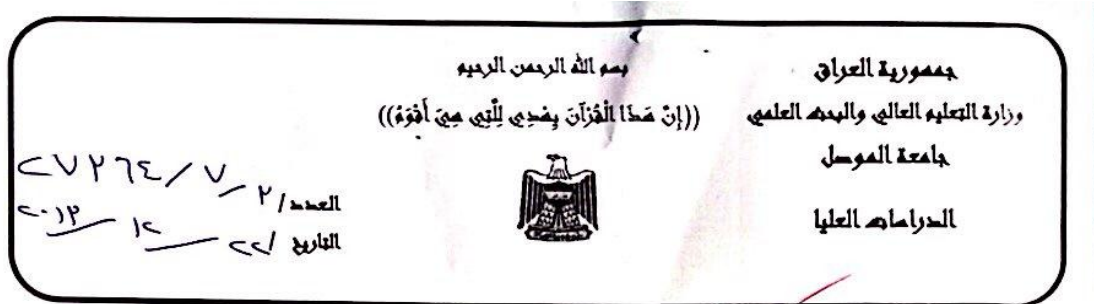 جمهورية العراق
وزارة التعليم العالي والبحث العلمي
جامعة الموصل
الدراسات العليا
بسم الله الرحمن الرحيم
((إِنَّ هَذَا الْقُرْآنَ يِهْدِي لِلَّتِي هِيَ أَقْوَمُ))
العدد/ ٣ / ٧ / ٢٧٣٦٤
التاريخ / ٢٢ / ١٢ / ٢٠١٣